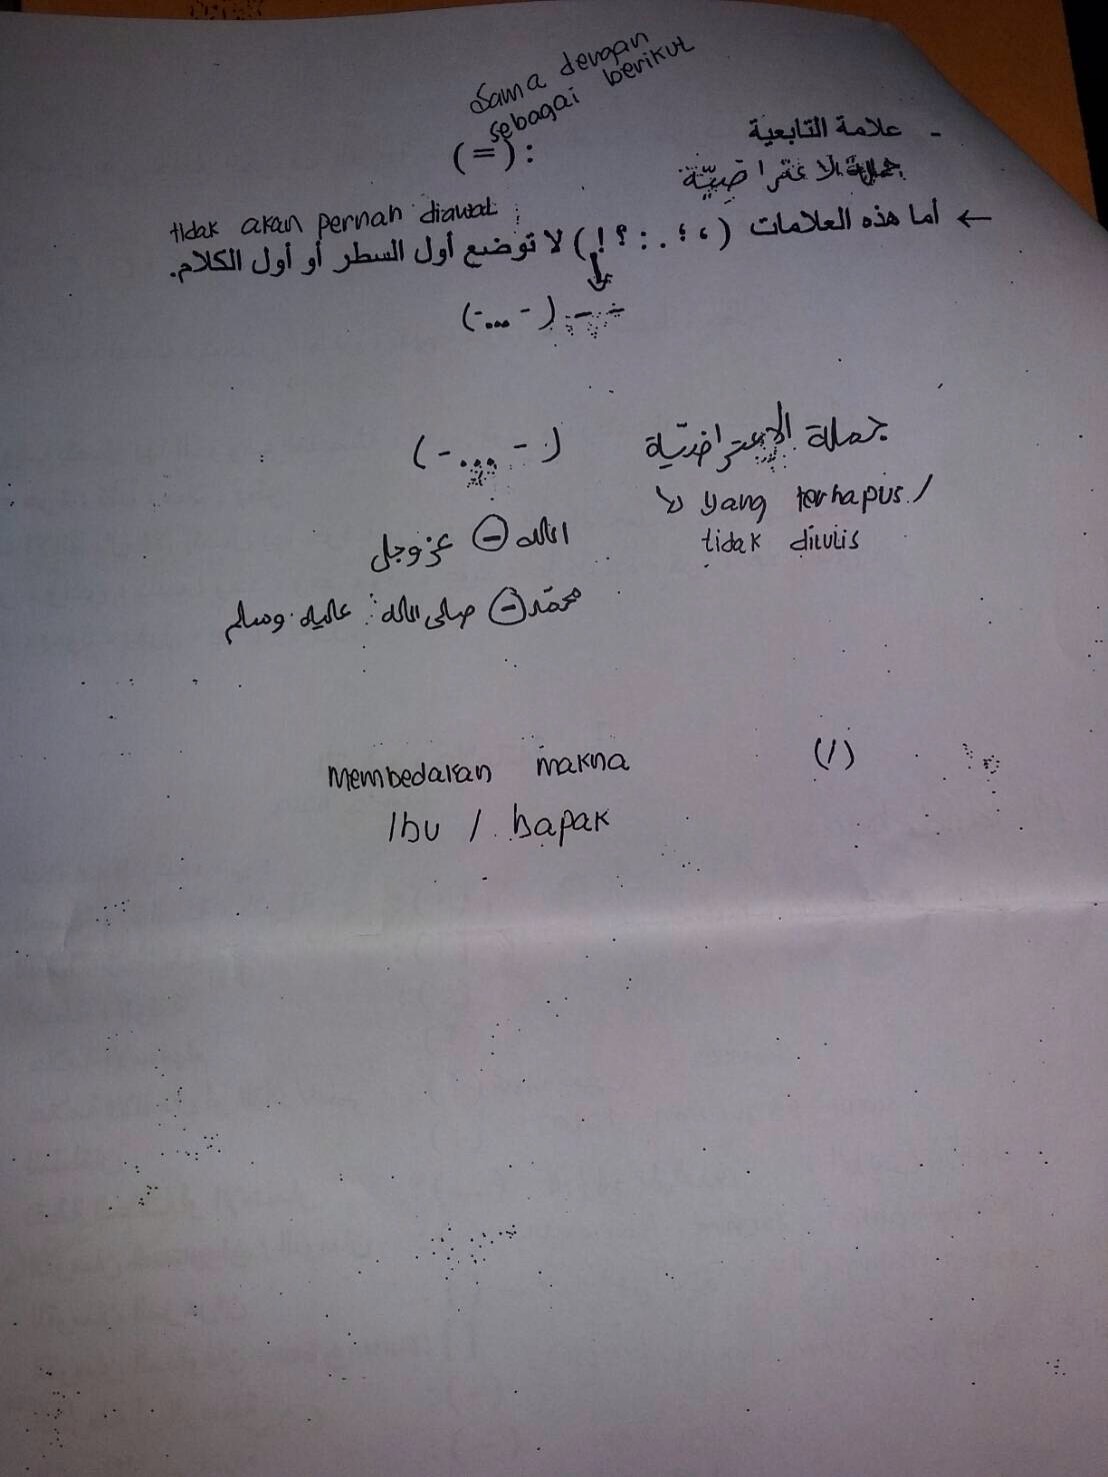 sama dengan
sebagai berikut
- علامة التابعية : (=)
جملة الاعتراضيّة
tidak akan pernah diawal
← أما هذه العلامات (، ؛ . : ؟ !) لا توضع أول السطر أو أول الكلام.
(-...-) - -
جملة الإعتراضيّة (-...-)
yang terhapus /
tidak ditulis
الله - عز وجل
محمّد - صلى الله عليه وسلم
(/) Membedakan makna
Ibu / bapak